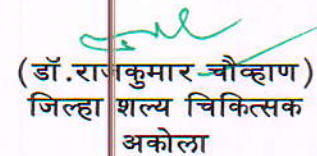 (डॉ.राजकुमार चौव्हाण)
जिल्हा शल्य चिकित्सक
अकोला